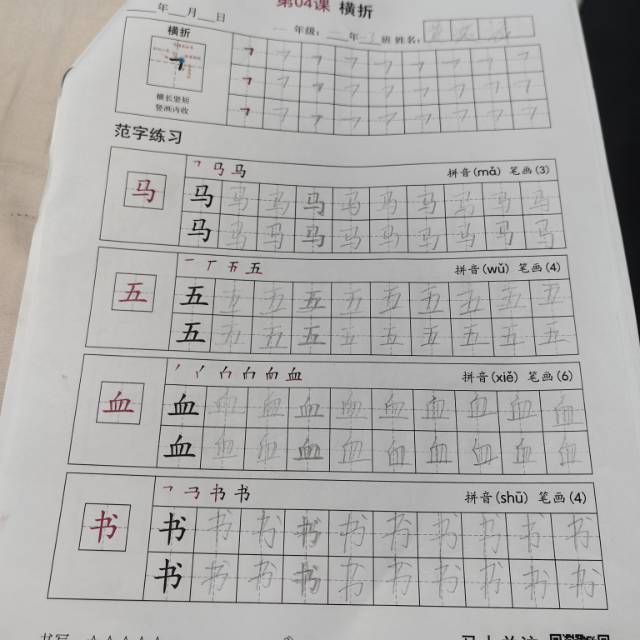 第04课 横折
年 月 日 年级： 年 班 姓名：
横折
横长竖短
竖画内收
范字练习
㇕ 马 马 拼音(mǎ) 笔画(3)
马 马 马 马 马 马 马 马 马 马 马
马 马 马 马 马 马 马 马 马 马
一 丅 五 五 拼音(wǔ) 笔画(4)
五 五 五 五 五 五 五 五 五 五 五
五 五 五 五 五 五 五 五 五 五
血 拼音(xiě) 笔画(6)
血 血 血 血 血 血 血 血 血 血 血
血 血 血 血 血 血 血 血 血 血
书 书 拼音(shū) 笔画(4)
书 书 书 书 书 书 书 书 书 书 书
书 书 书 书 书 书 书 书 书 书
书写 ☆☆☆☆☆